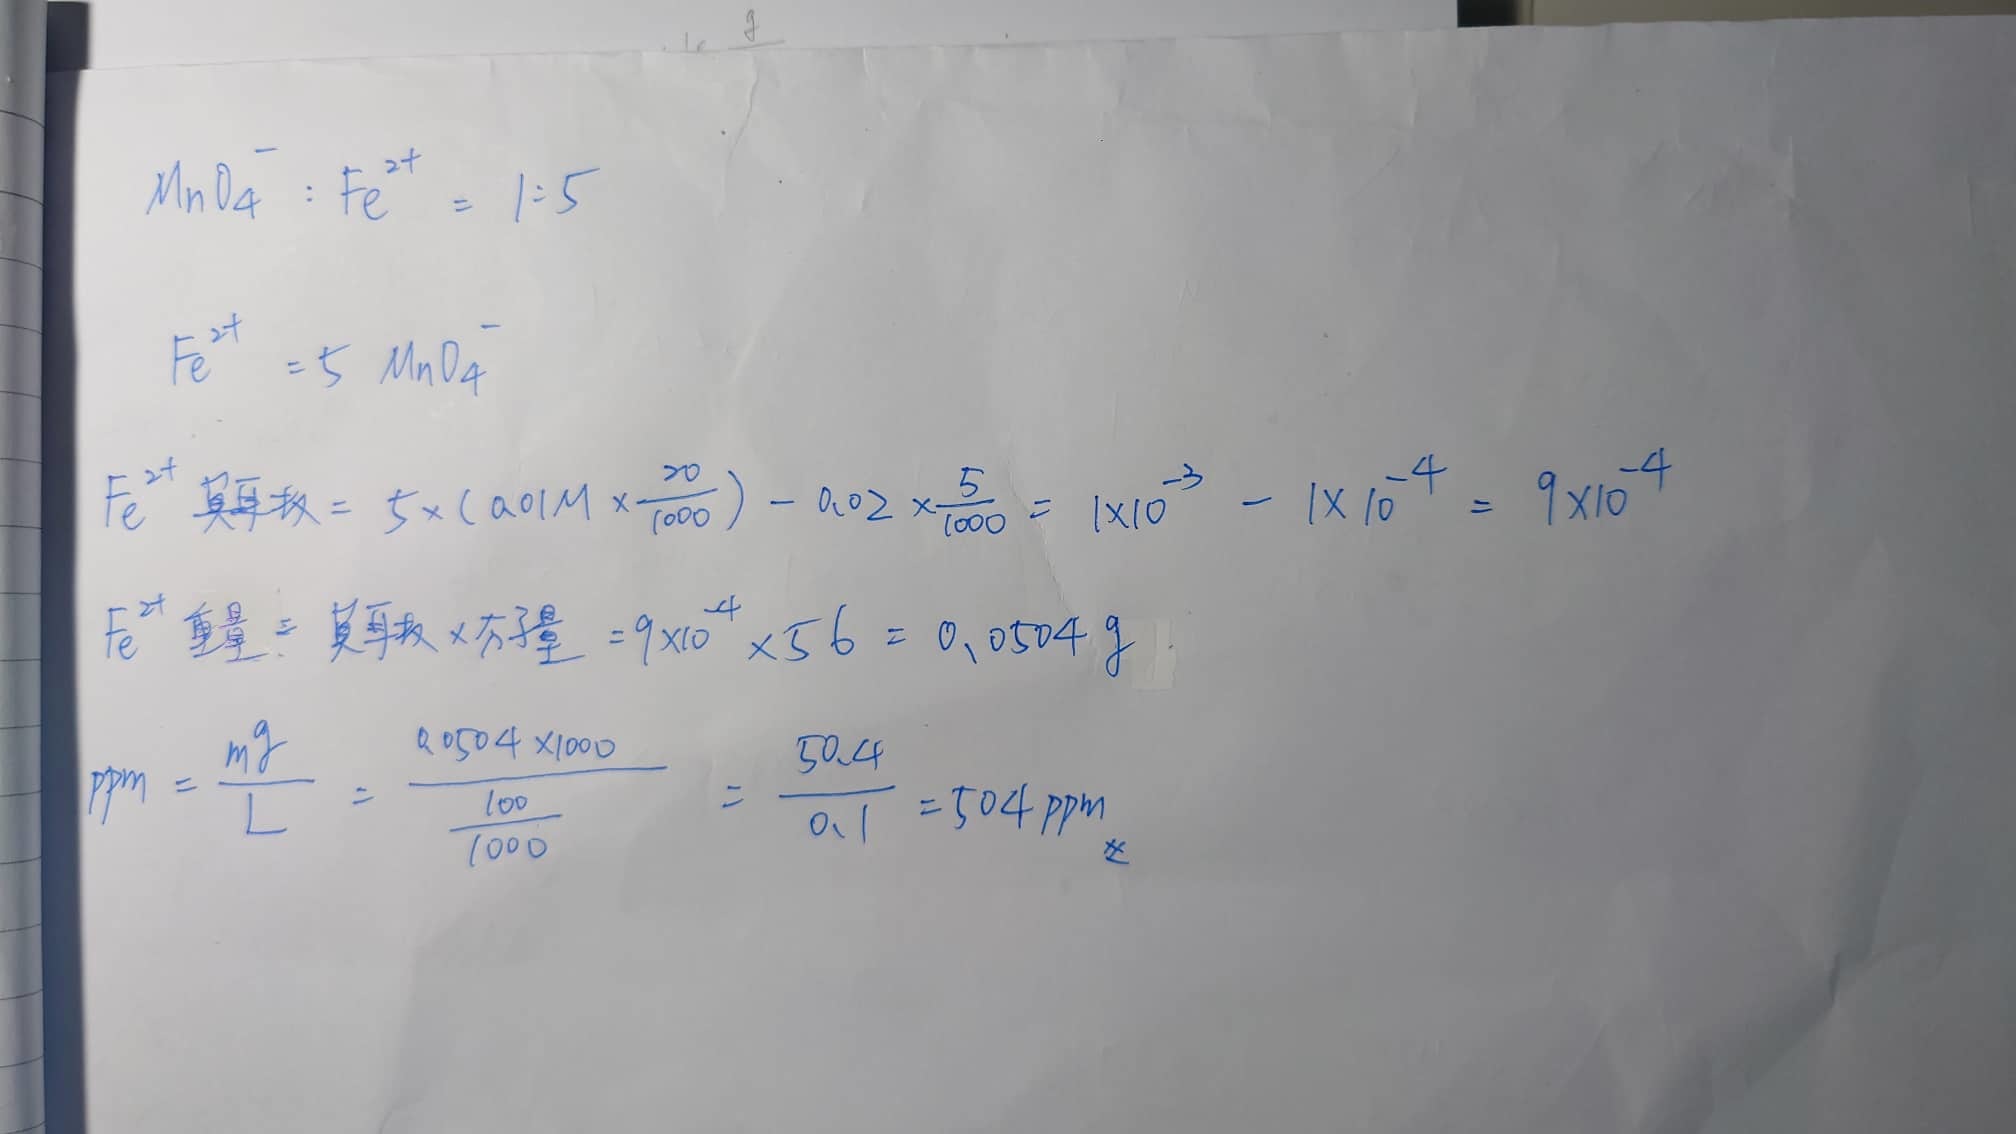 g
MnO4⁻ : Fe²⁺ = 1:5
Fe²⁺ = 5 MnO4⁻
Fe²⁺ 莫耳数 = 5×(0.01M × 20/1000) - 0.02 × 5/1000 = 1×10⁻³ - 1×10⁻⁴ = 9×10⁻⁴
Fe²⁺ 重量 = 莫耳数 × 分子量 = 9×10⁻⁴ × 56 = 0.0504 g
ppm = mg/L = 0.0504×1000 / (100/1000) = 50.4/0.1 = 504 ppm